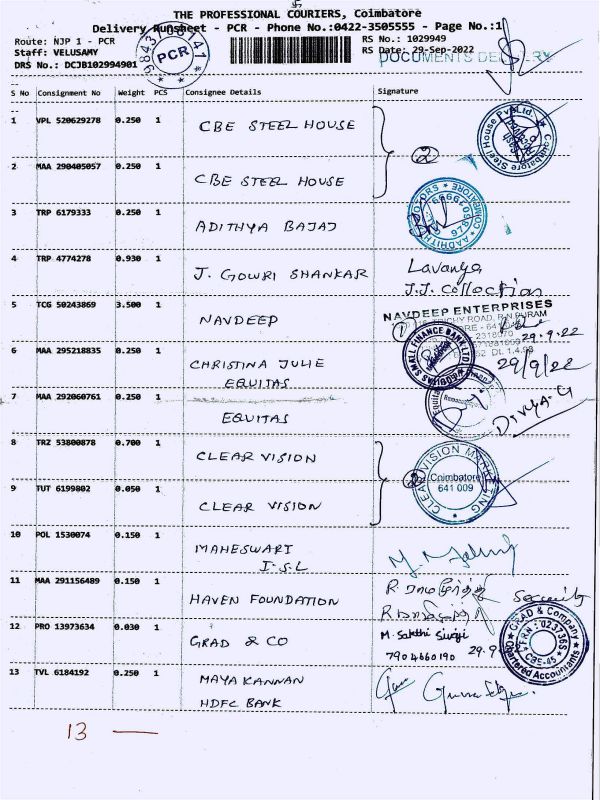 THE PROFESSIONAL COURIERS, Coimbatore
Delivery Runsheet - PCR - Phone No.:0422-3505555 - Page No.:1
Route: NJP 1 - PCR
RS No.: 1029949
Staff: VELUSAMY
RS Date: 29-Sep-2022
DRS No.: DCJB102994901
DOCUMENTS DELIVERY
PCR
S No Consignment No Weight PCS Consignee Details Signature
1 VPL 520629278 0.250 1 CBE STEEL HOUSE
Coimbatore Steel House Pvt Ltd.
2
2 MAA 290405057 0.250 1 CBE STEEL HOUSE
3 TRP 6179333 0.250 1 ADITHYA BAJAJ
COIMBATORE
4 TRP 4774278 0.930 1 J. GOWRI SHANKAR Lavanya
J.J. Collection
5 TCG 50243869 3.500 1 NAVDEEP
NAVDEEP ENTERPRISES
TRICHY ROAD, R.N.PURAM
1
29.9.22
6 MAA 295218835 0.250 1 CHRISTINA JULIE
EQUITAS
EQUITAS SMALL FINANCE BANK LTD
29/9/22
7 MAA 292060761 0.250 1 EQUITAS
Divya.G
8 TRZ 53800878 0.700 1 CLEAR VISION
CLEAR VISION MARKETING
Coimbatore
641 009
2
9 TUT 6199802 0.050 1 CLEAR VISION
10 POL 1530074 0.150 1 MAHESWARI
I.S.L
11 MAA 291156489 0.150 1 HAVEN FOUNDATION
Security
12 PRO 13973634 0.030 1 GRAD & CO
M. Sakthi Sivaji
7904660190 29.9
GRAD & Company
Chartered Accountants
CBE-45
13 TVL 6184192 0.250 1 MAYA KANNAN
HDFC BANK
13 —